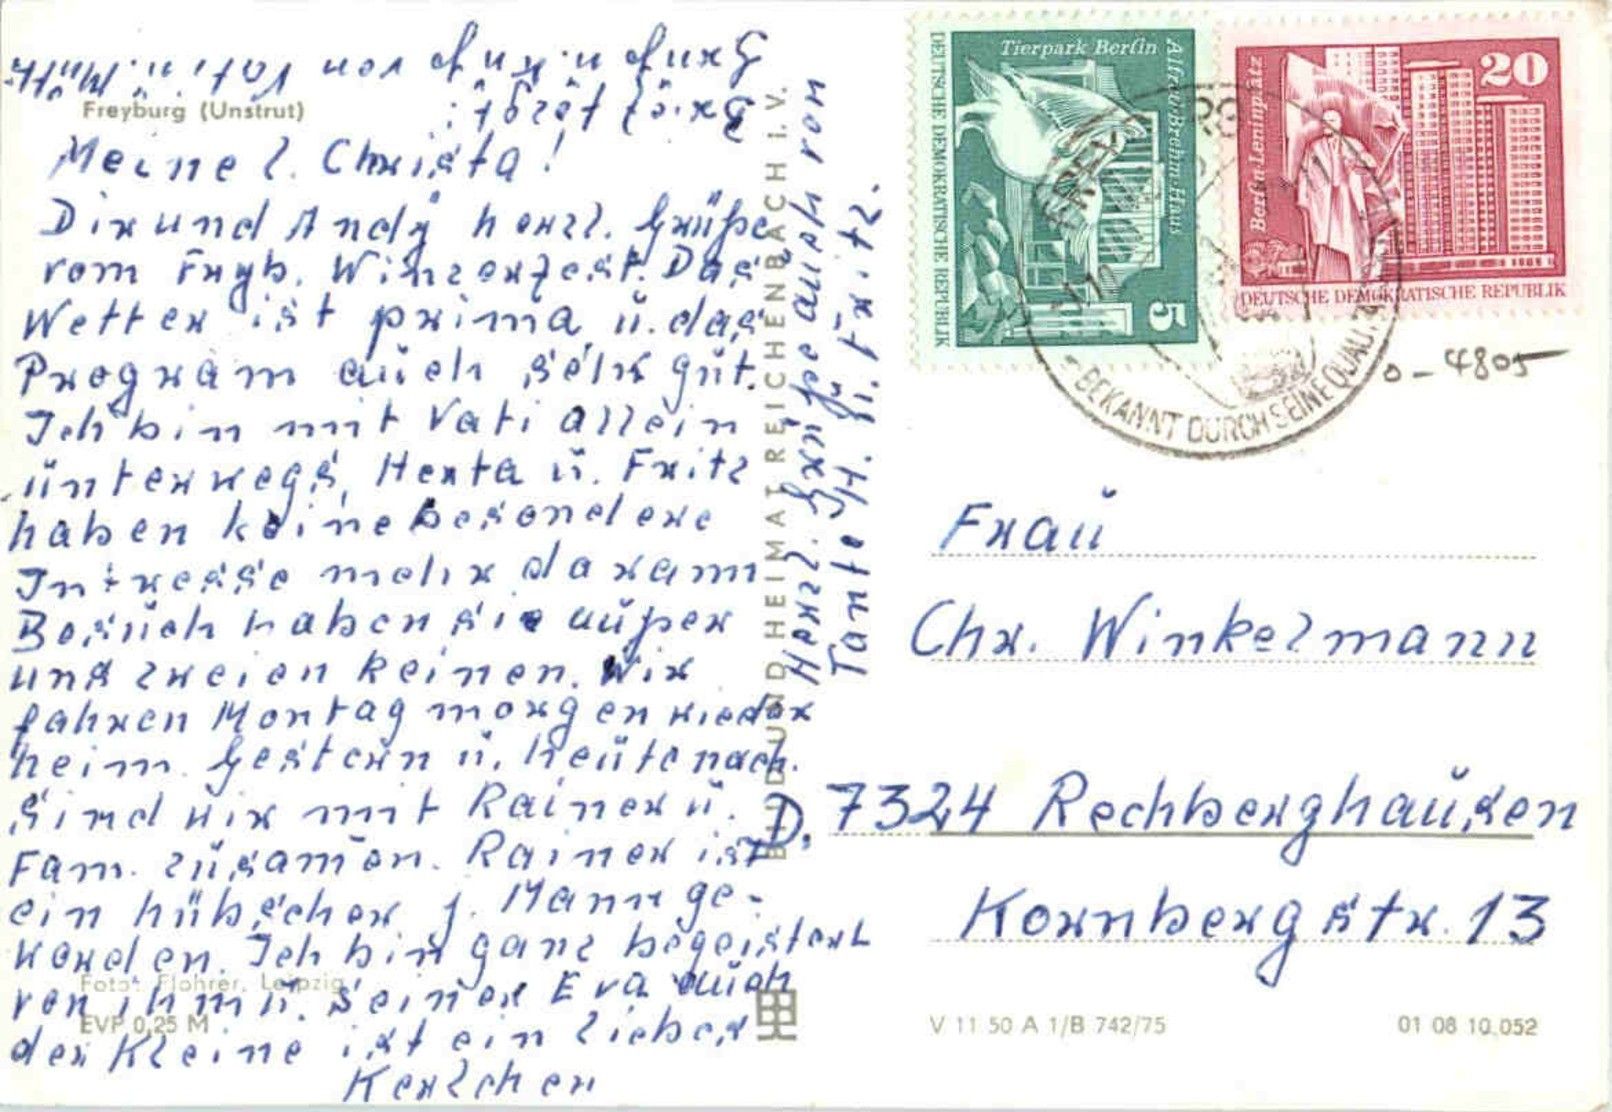 Freyburg (Unstrut)
Meine l. Christa!
Dir und Andy herzl. Grüße
vom Fryb. Winzerfest. Das
Wetter ist prima u. das
Program auch sehr gut.
Ich bin mit Vati allein
unterwegs, Herta u. Fritz
haben keine besondere
Intresse mehr daram
Besuch haben sie außer
uns zweien keinen. Wir
fahren Montag morgen wieder
heim. Gestern u. heute nach.
sind wir mit Rainer u.
Fam. zusam̄en. Rainer ist
ein hübscher j. Mann ge-
worden. Ich bin ganz begeistert
von ihm u. seiner Eva auch
der Kleine ist ein lieber
Kerlchen
Brief folgt!
Gruß u. Kuß von Vati u. Mutti
Herzl. Grüße auch von
Tante H. u. Fritz.
BILD UND HEIMAT REICHENBACH I.V.
Foto: Flohrer, Leipzig
EVP 0,25 M
DEUTSCHE DEMOKRATISCHE REPUBLIK
Tierpark Berlin
Alfred-Brehm-Haus
5
20
Berlin-Leninplatz
DEUTSCHE DEMOKRATISCHE REPUBLIK
FREY
BEKANNT DURCH SEINE QUALI
0-4805
Frau
Chr. Winkelmann
D. 7324 Rechberghausen
Kornbergstr. 13
V 11 50 A 1/B 742/75
01 08 10.052